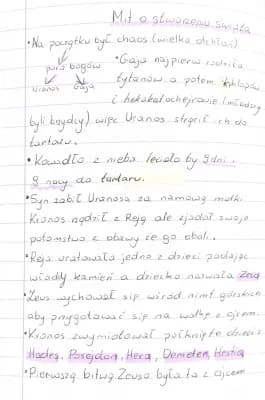 Mit o stworzeniu świata
•Na początku był chaos (wielka otchłań)
para bogów
•Gaja najpierw rodziła
Uranos Gaja
tytanów a potem cyklopów
i hekatoncheirowie (młodzi
byli brzydcy) więc Uranos strącił ich do
tartaru.
•Kowadło z nieba leciało by 9 dni i
9 nocy do tartaru.
•Syn zabił Uranosa za namową matki
Kronos rządził z Reją ale zjadał swoje
potomstwo z obawy że go obali.
•Reja uratowała jedno z dzieci podając
władcy kamień a dziecko nazwała Zeus
•Zeus wychował się wśród nimf górskich
aby przygotować się na walkę z ojcem.
•Kronos zwymiotował połknięte dzieci:
Hadea, Posejdon, Hera, Demeter, Hestia
•Pierwszą bitwą Zeusa była ta z ojcem